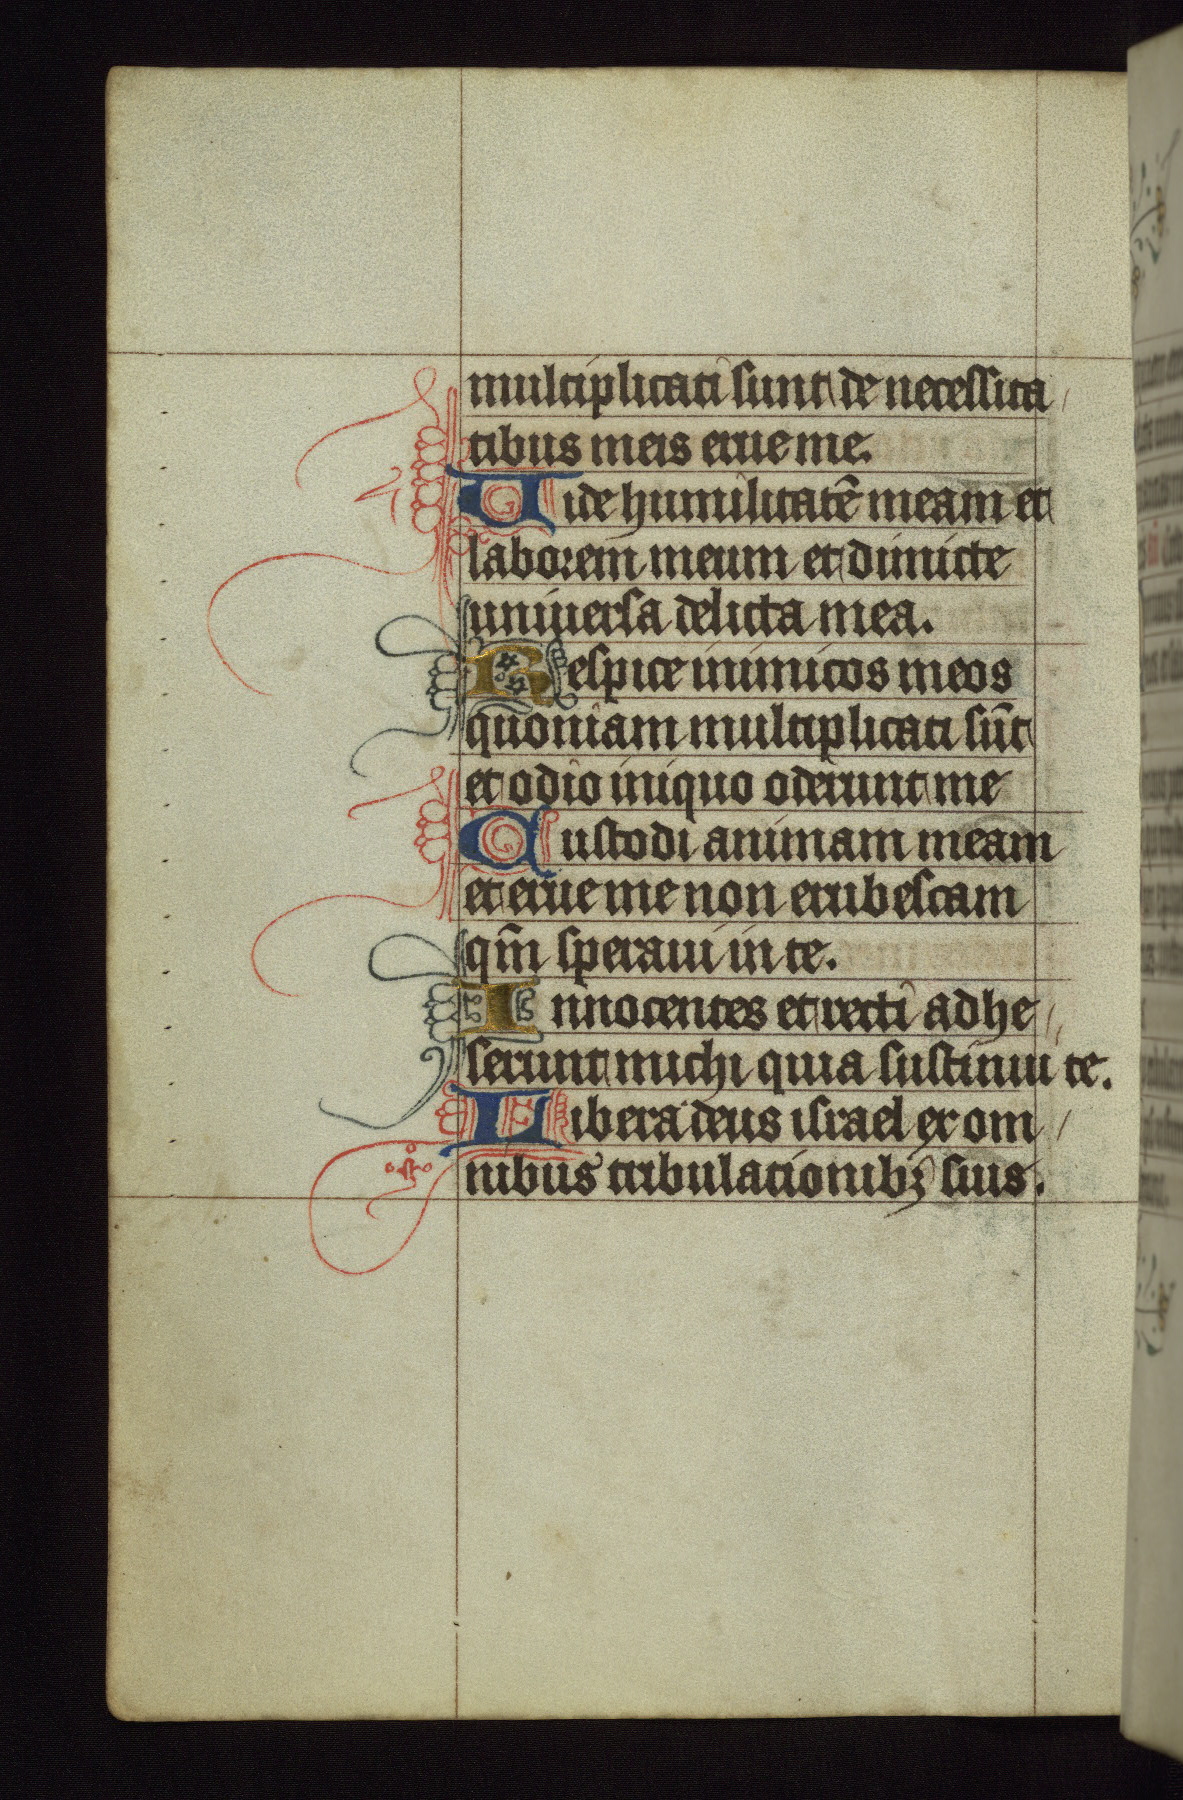 multiplicati sunt de necessita
tibus meis erue me.
Uide humilitatē meam et
laborem meum et dimicte
uniuersa delicta mea.
Respice inimicos meos
quoniam multiplicati sūt
et odio iniquo oderunt me
Custodi animam meam
et erue me non erubescam
qm̄ speraui in te.
Innocentes et recti adhe
serunt michi quia sustinui te.
Libera deus israel ex om
nibus tribulationibꝫ suis.